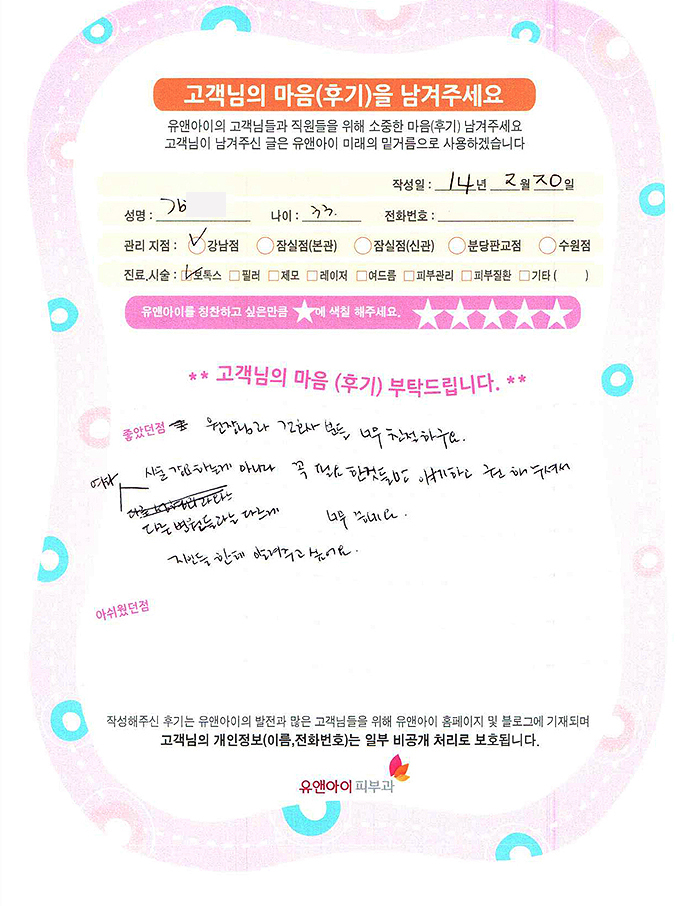 고객님의 마음(후기)을 남겨주세요
유앤아이의 고객님들과 직원들을 위해 소중한 마음(후기) 남겨주세요
고객님이 남겨주신 글은 유앤아이 미래의 밑거름으로 사용하겠습니다
작성일 : 14년 2월 20일
성명 : 나이 : 33. 전화번호 :
관리 지점 : 강남점 잠실점(본관) 잠실점(신관) 분당판교점 수원점
진료.시술 : 보톡스 필러 제모 레이저 여드름 피부관리 피부질환 기타 ( )
유앤아이를 칭찬하고 싶은만큼 ★에 색칠 해주세요. ★★★★★
** 고객님의 마음 (후기) 부탁드립니다. **
좋았던점 원장님과 간호사 분들 너무 친절하구요.
시술 강요하는게 아니라 꼭 필요한것들만 얘기하고 권해주셔서
다른 병원들과는 다르게 너무 좋네요.
지인들 한테 알려주고 싶어요.
아쉬웠던점
작성해주신 후기는 유앤아이의 발전과 많은 고객님들을 위해 유앤아이 홈페이지 및 블로그에 기재되며
고객님의 개인정보(이름,전화번호)는 일부 비공개 처리로 보호됩니다.
유앤아이 피부과